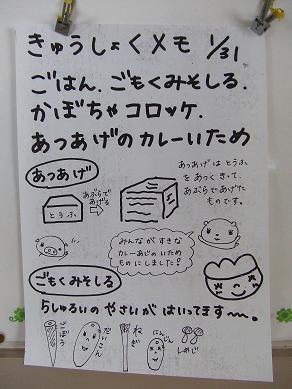 きゅうしょくメモ 1/31
ごはん.ごもくみそしる.
かぼちゃコロッケ.
あつあげのカレーいため
あつあげ
とうふ
あぶらで
あげる
あつあげは とうふ
をあつくきって、
あぶらであげた
ものです。
みんながすきな
カレーあじのいため
ものにしました!
ごもくみそしる
5しゅるいの やさいが はいってます〜.
ごぼう
だいこん
ねぎ
にんじん
しめじ